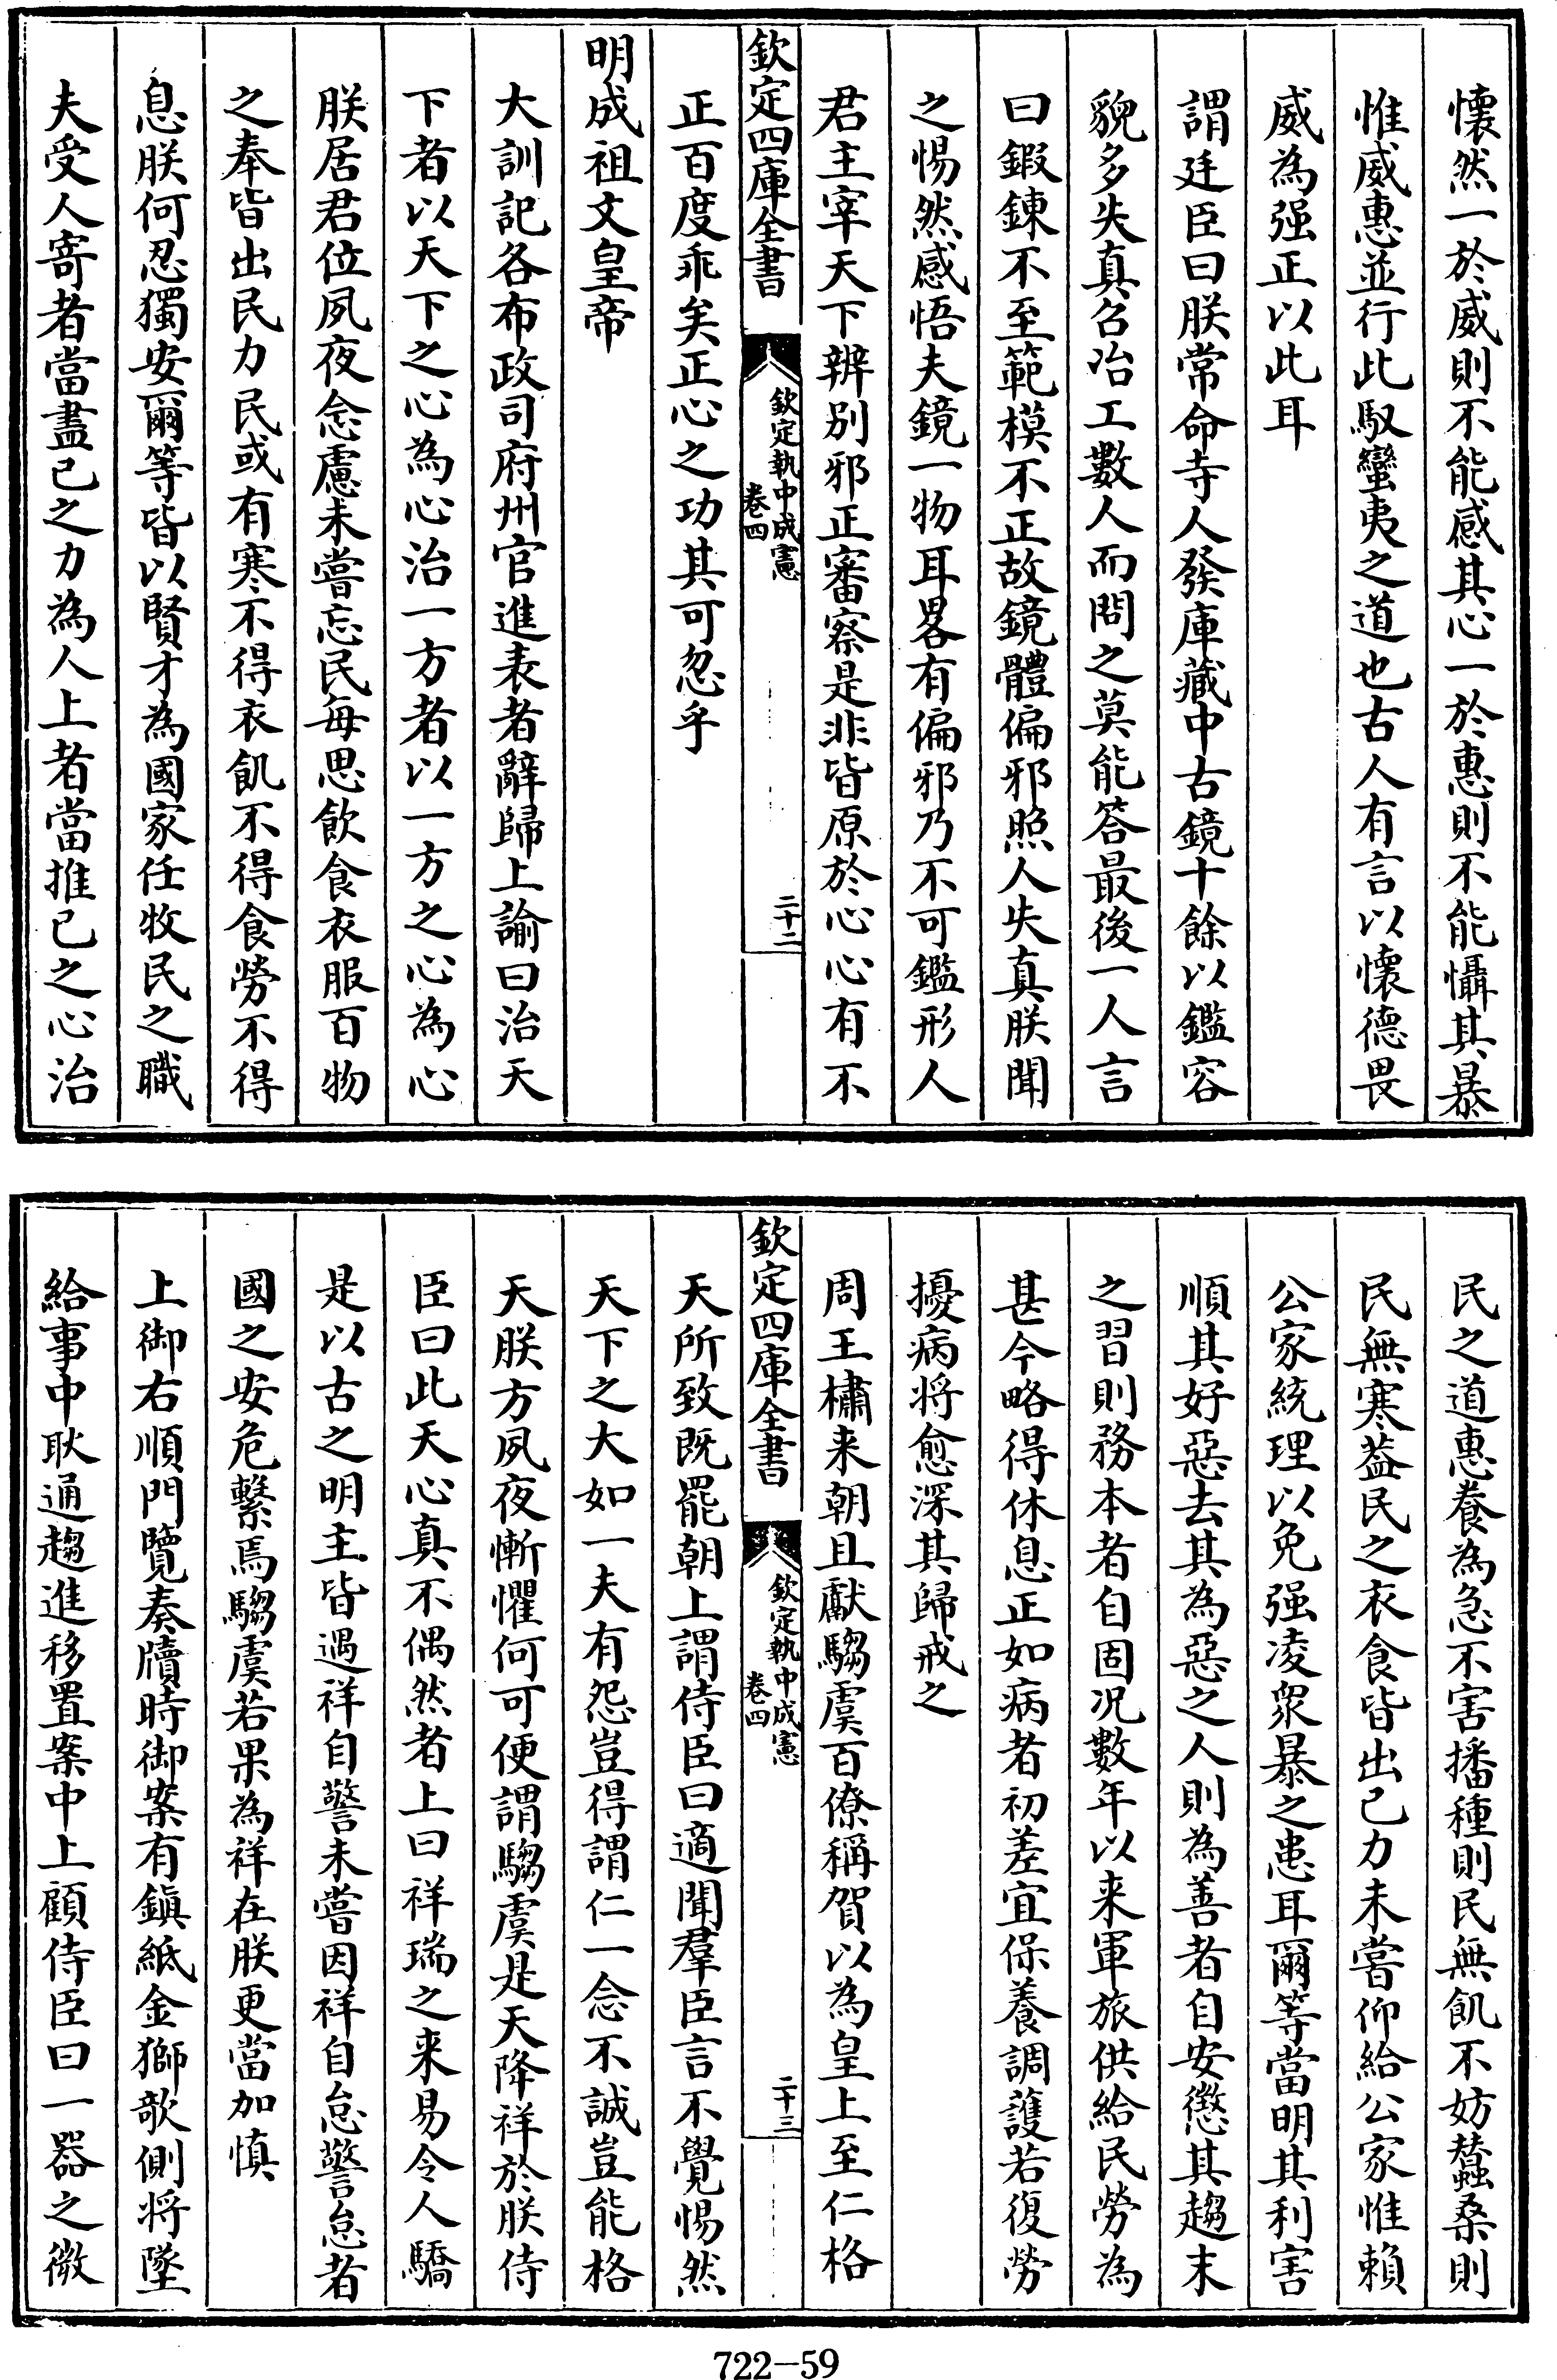 懐然一於威則不能感其心一於惠則不能懾其暴
惟威惠並行此馭蠻夷之道也古人有言以懐德畏
威為强正以此耳
謂廷臣曰朕常命寺人發庫藏中古鏡十餘以鑑容
貌多失真召冶工數人而問之莫能答最後一人言
曰鍜鍊不至範模不正故鏡體偏邪照人失真朕聞
之惕然感悟夫鏡一物耳畧有偏邪乃不可鑑形人
君主宰天下辨别邪正審察是非皆原於心心有不
正百度乖矣正心之功其可忽乎
欽定四庫全書
欽定執中成憲
卷四
二十二
明成祖文皇帝
大訓記各布政司府州官進表者辭歸上諭曰治天
下者以天下之心為心治一方者以一方之心為心
朕居君位夙夜念慮未嘗忘民每思飲食衣服百物
之奉皆出民力民或有寒不得衣飢不得食勞不得
息朕何忍獨安爾等皆以賢才為國家任牧民之職
夫受人寄者當盡已之力為人上者當推已之心治
民之道惠養為急不害播種則民無飢不妨蠶桑則
民無寒葢民之衣食皆出已力未嘗仰給公家惟賴
公家統理以免强凌衆暴之患耳爾等當明其利害
順其好惡去其為惡之人則為善者自安懲其趨末
之習則務本者自固况數年以来軍旅供給民勞為
甚今略得休息正如病者初差宜保養調護若復勞
擾病将愈深其歸戒之
周王橚来朝且獻騶虞百僚稱賀以為皇上至仁格
欽定四庫全書
欽定執中成憲
卷四
二十三
天所致既罷朝上謂侍臣曰適聞羣臣言不覺惕然
天下之大如一夫有怨豈得謂仁一念不誠豈能格
天朕方夙夜慚懼何可便謂騶虞是天降祥於朕侍
臣曰此天心真不偶然者上曰祥瑞之来易令人驕
是以古之明主皆遇祥自警未嘗因祥自怠警怠者
國之安危繫焉騶虞若果為祥在朕更當加慎
上御右順門覽奏牘時御案有鎮紙金獅欹側将墜
給事中耿通趨進移置案中上顧侍臣曰一器之微
722—59